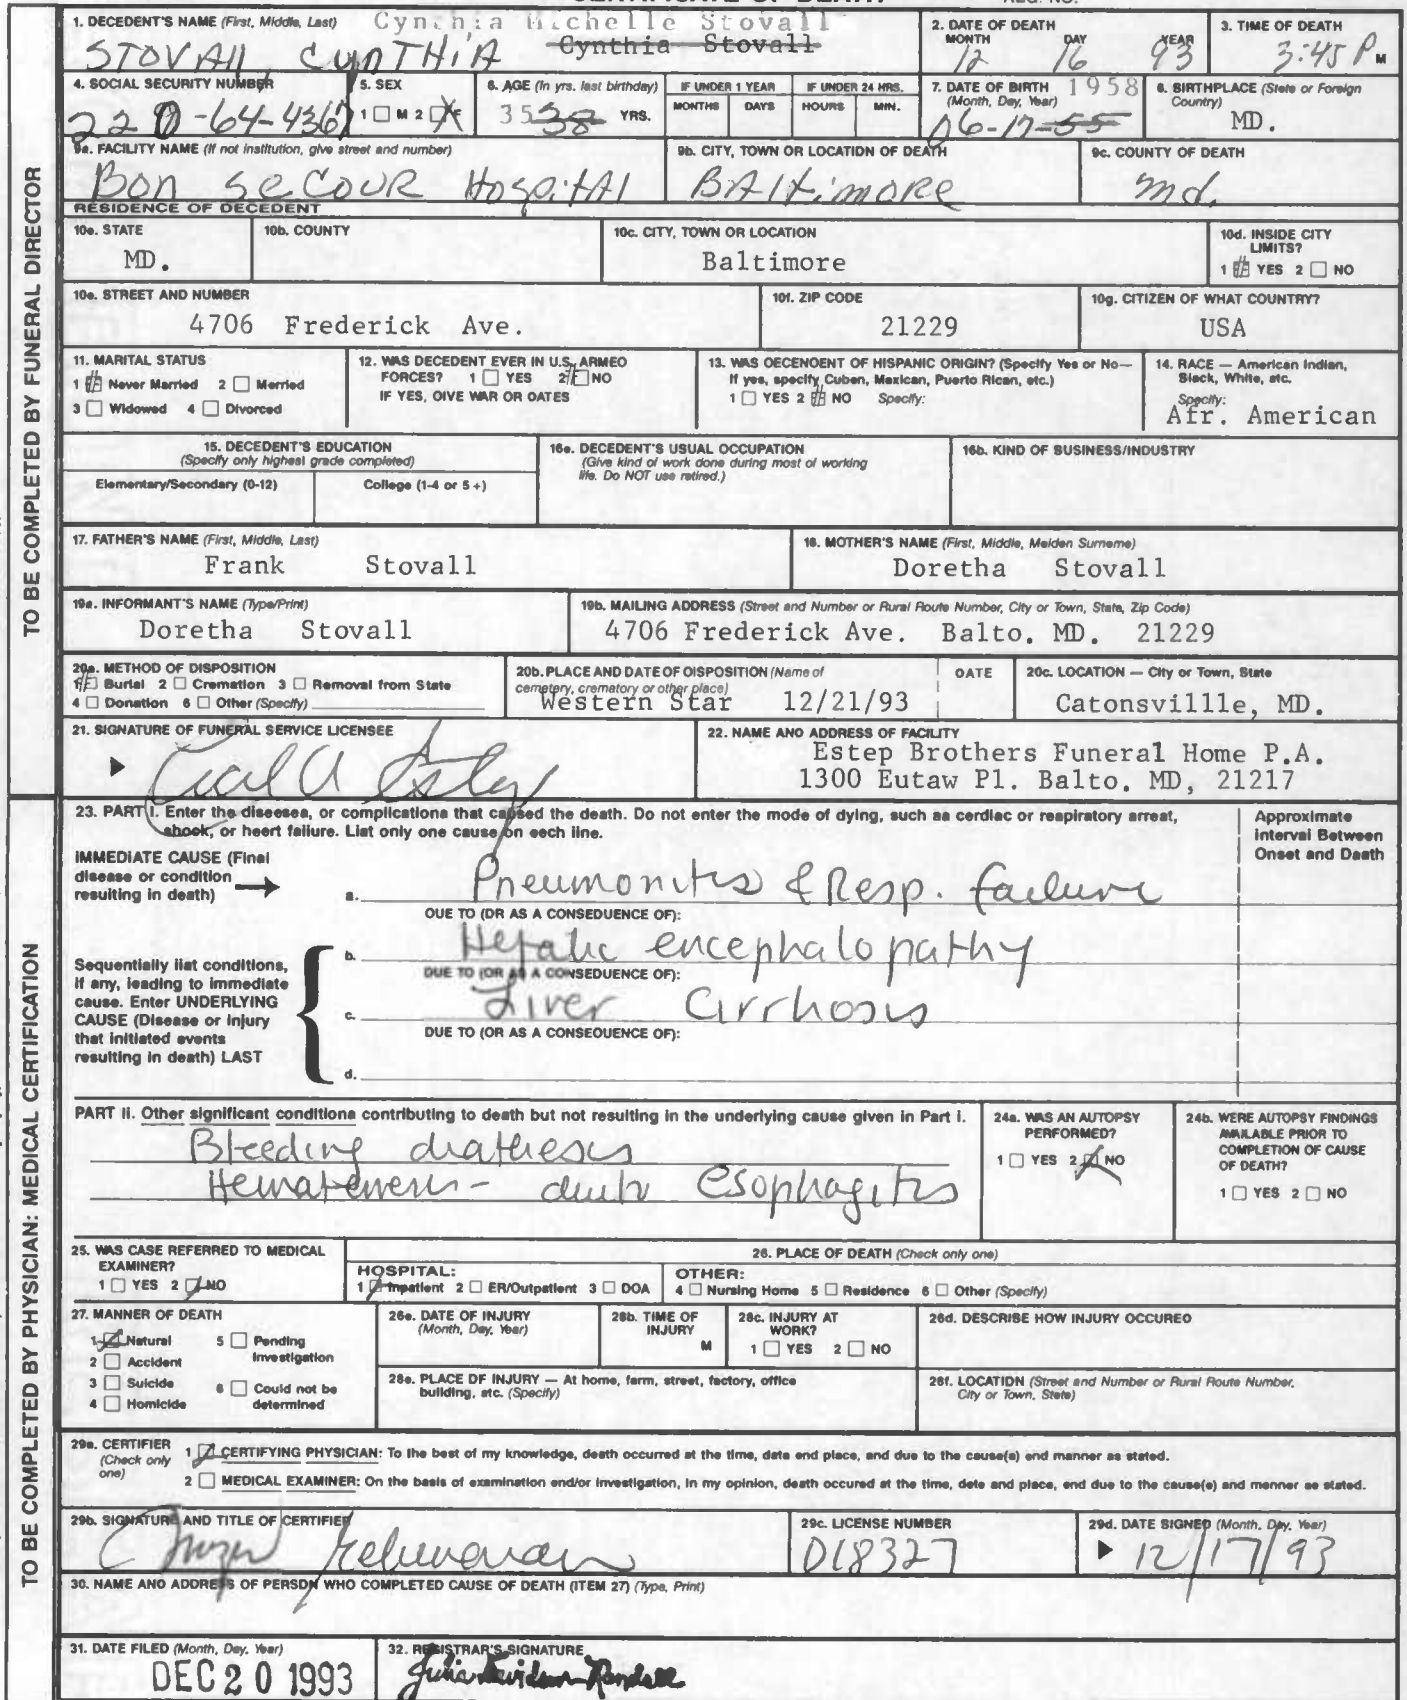 CERTIFICATE OF DEATH
REG. NO.
1. DECEDENT'S NAME (First, Middle, Last)
Cynthia Michelle Stovall
Cynthia Stovall
STOVAll, CynTHiA
2. DATE OF DEATH
MONTH DAY YEAR
12 16 93
3. TIME OF DEATH
3:45 P M
4. SOCIAL SECURITY NUMBER
220-64-4367
5. SEX
1 M 2 F
6. AGE (In yrs. last birthday)
35 38 YRS.
IF UNDER 1 YEAR
MONTHS DAYS
IF UNDER 24 HRS.
HOURS MIN.
7. DATE OF BIRTH 1958
(Month, Day, Year)
06-17-55
8. BIRTHPLACE (State or Foreign
Country)
MD.
9a. FACILITY NAME (If not institution, give street and number)
Bon SeCOUR HospitAl
9b. CITY, TOWN OR LOCATION OF DEATH
BAltimore
9c. COUNTY OF DEATH
md.
RESIDENCE OF DECEDENT
10a. STATE
MD.
10b. COUNTY
10c. CITY, TOWN OR LOCATION
Baltimore
10d. INSIDE CITY
LIMITS?
1 YES 2 NO
10e. STREET AND NUMBER
4706 Frederick Ave.
10f. ZIP CODE
21229
10g. CITIZEN OF WHAT COUNTRY?
USA
11. MARITAL STATUS
1 Never Married 2 Married
3 Widowed 4 Divorced
12. WAS DECEDENT EVER IN U.S. ARMED
FORCES? 1 YES 2 NO
IF YES, GIVE WAR OR DATES
13. WAS DECENDENT OF HISPANIC ORIGIN? (Specify Yes or No—
If yes, specify Cuban, Mexican, Puerto Rican, etc.)
1 YES 2 NO Specify:
14. RACE — American Indian,
Black, White, etc.
Specify:
Afr. American
15. DECEDENT'S EDUCATION
(Specify only highest grade completed)
Elementary/Secondary (0-12) College (1-4 or 5+)
16a. DECEDENT'S USUAL OCCUPATION
(Give kind of work done during most of working
life. Do NOT use retired.)
16b. KIND OF BUSINESS/INDUSTRY
17. FATHER'S NAME (First, Middle, Last)
Frank Stovall
18. MOTHER'S NAME (First, Middle, Maiden Surname)
Doretha Stovall
19a. INFORMANT'S NAME (Type/Print)
Doretha Stovall
19b. MAILING ADDRESS (Street and Number or Rural Route Number, City or Town, State, Zip Code)
4706 Frederick Ave. Balto. MD. 21229
20a. METHOD OF DISPOSITION
1 Burial 2 Cremation 3 Removal from State
4 Donation 6 Other (Specify)
20b. PLACE AND DATE OF DISPOSITION (Name of
cemetery, crematory or other place)
Western Star 12/21/93
DATE
20c. LOCATION — City or Town, State
Catonsvillle, MD.
21. SIGNATURE OF FUNERAL SERVICE LICENSEE
22. NAME AND ADDRESS OF FACILITY
Estep Brothers Funeral Home P.A.
1300 Eutaw Pl. Balto. MD, 21217
TO BE COMPLETED BY FUNERAL DIRECTOR
23. PART I. Enter the diseases, or complications that caused the death. Do not enter the mode of dying, such as cardiac or respiratory arrest,
shock, or heart failure. List only one cause on each line.
Approximate
Interval Between
Onset and Death
IMMEDIATE CAUSE (Final
disease or condition
resulting in death)
a. Pneumonitis & Resp. failure
DUE TO (OR AS A CONSEQUENCE OF):
b. Hepatic encephalopathy
DUE TO (OR AS A CONSEQUENCE OF):
c. Liver Cirrhosis
DUE TO (OR AS A CONSEQUENCE OF):
d.
Sequentially list conditions,
if any, leading to immediate
cause. Enter UNDERLYING
CAUSE (Disease or injury
that initiated events
resulting in death) LAST
PART II. Other significant conditions contributing to death but not resulting in the underlying cause given in Part I.
Bleeding diathesis
Hematemesis - esophagitis
24a. WAS AN AUTOPSY
PERFORMED?
1 YES 2 NO
24b. WERE AUTOPSY FINDINGS
AVAILABLE PRIOR TO
COMPLETION OF CAUSE
OF DEATH?
1 YES 2 NO
25. WAS CASE REFERRED TO MEDICAL
EXAMINER?
1 YES 2 NO
26. PLACE OF DEATH (Check only one)
HOSPITAL:
1 Inpatient 2 ER/Outpatient 3 DOA
OTHER:
4 Nursing Home 5 Residence 6 Other (Specify)
27. MANNER OF DEATH
1 Natural 5 Pending
Investigation
2 Accident
3 Suicide 6 Could not be
determined
4 Homicide
28a. DATE OF INJURY
(Month, Day, Year)
28b. TIME OF
INJURY
M
28c. INJURY AT
WORK?
1 YES 2 NO
28d. DESCRIBE HOW INJURY OCCURED
28e. PLACE OF INJURY — At home, farm, street, factory, office
building, etc. (Specify)
28f. LOCATION (Street and Number or Rural Route Number,
City or Town, State)
29a. CERTIFIER
(Check only
one)
1 CERTIFYING PHYSICIAN: To the best of my knowledge, death occurred at the time, date and place, and due to the cause(s) and manner as stated.
2 MEDICAL EXAMINER: On the basis of examination and/or investigation, in my opinion, death occured at the time, date and place, and due to the cause(s) and manner as stated.
29b. SIGNATURE AND TITLE OF CERTIFIER
29c. LICENSE NUMBER
D18327
29d. DATE SIGNED (Month, Day, Year)
12/17/93
30. NAME AND ADDRESS OF PERSON WHO COMPLETED CAUSE OF DEATH (ITEM 27) (Type, Print)
31. DATE FILED (Month, Day, Year)
DEC 20 1993
32. REGISTRAR'S SIGNATURE
Julia Davidson-Randall
TO BE COMPLETED BY PHYSICIAN: MEDICAL CERTIFICATION